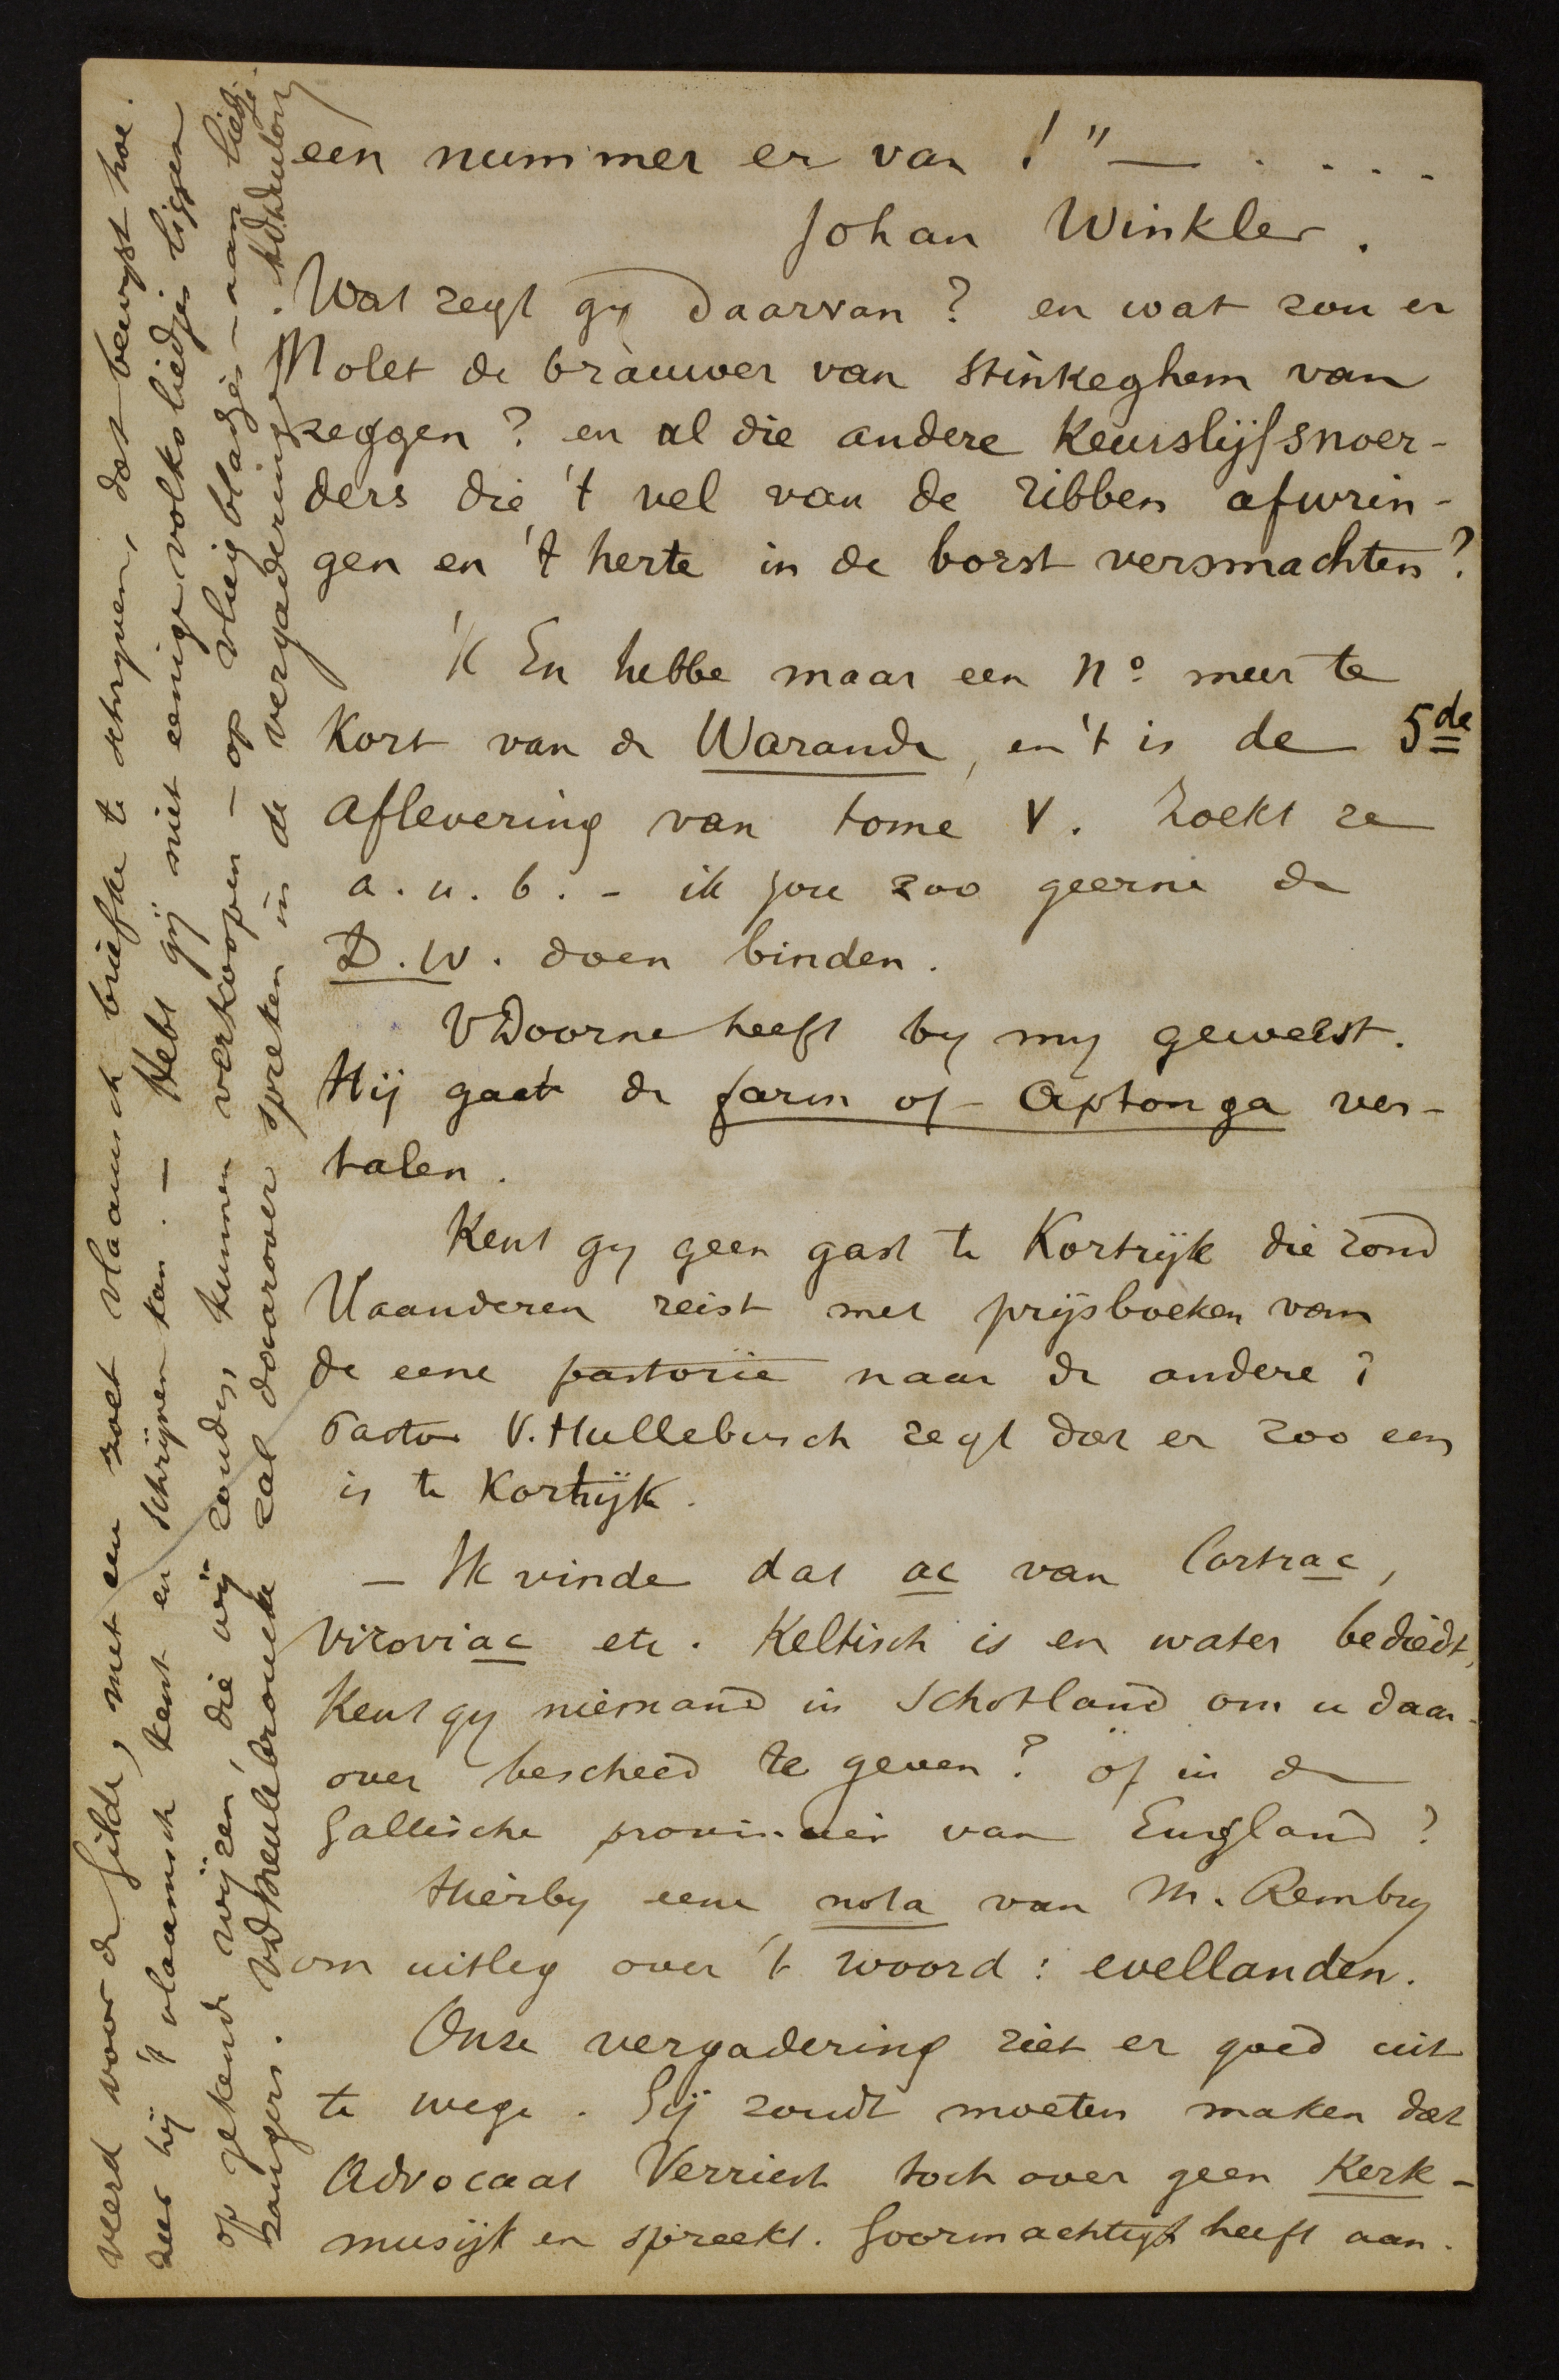 een nummer er van !" — . . . .
Johan Winkler.
Wat zegt gy daarvan? en wat zou er
Molet de bràuwer van Stinkeghem van
zeggen? en al die andere keurslijfsnoer-
ders die 't vel van de ribben afwrin-
gen en 't herte in de borst versmachten?
'K En hebbe maar een N° meer te
kort van de Warande, en 't is de 5de
aflevering van tome V. Zoekt ze
a.u.b. - ik zou zoo geerne de
D.W. doen binden.
VDoorne heeft by my geweest.
Hij gaat de farm of Aptonga ver-
talen.
Kent gy geen gast te Kortrijk die rond
Vlaanderen reist met prijsboeken van
de eene pastorie naar de andere?
Pastor V. Hullebusch zegt dat er zoo een
is te Kortrijk.
— Ik vinde dat ac van Cortrac,
Viroviac etc. Keltisch is en water bediedt,
Kent gy niemand in Schotland om u daar-
over bescheed te geven? of in de
Gallische provincien van England?
Hierby eene nota van M. Rembry
om uitleg over 't woord: evellanden.
Onze vergadering ziet er goed uit
te wege. Gij zoudt moeten maken dat
Advocaat Verriest toch over geen Kerk-
musijk en spreekt. Goormachtigh heeft aan-
veerd voor de Gilde, met een zoet vlaamsch briefke te schryven, dat bewyst hoe
zeer hij 't vlaamsch kent en schrijven kan. — Hebt gij niet eenige volksliedjes liggen
op gekende wijzen, die wij zouden kunnen verkoopen — op vliegbladjes — aan liedje-
zangers. VDMeulebroucke zal daarover spreken in de vergaderinge.